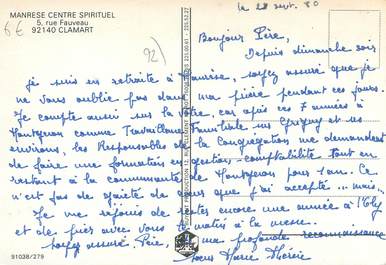 MANRESE CENTRE SPIRITUEL
5, rue Fauveau
92140 CLAMART
6€
92)
le 28 sept. 80
Bonjour Père,
Depuis dimanche soir
Je suis en retraite à Manrèse, soyez assuré que je
ne vous oublie pas dans ma prière pendant ces jours.
Je compte aussi sur la vôtre, car après ces 7 années à
Montgeron comme Travailleuse Familiale sur Grigny et ses
environs, les Responsables de la Congrégation me demandent
de faire une formation en gestion-comptabilité tout en
restant à la communauté de Montgeron pour 1 an. Ce
n'est pas de gaieté de cœur que j'ai accepté... mais,
Je me réjouis de rester encore une année à l'
et de prier avec vous le matin à la messe.
Soyez assuré, Père, de ma profonde reconnaissance
Soeur Marie Thérèse
91038/279